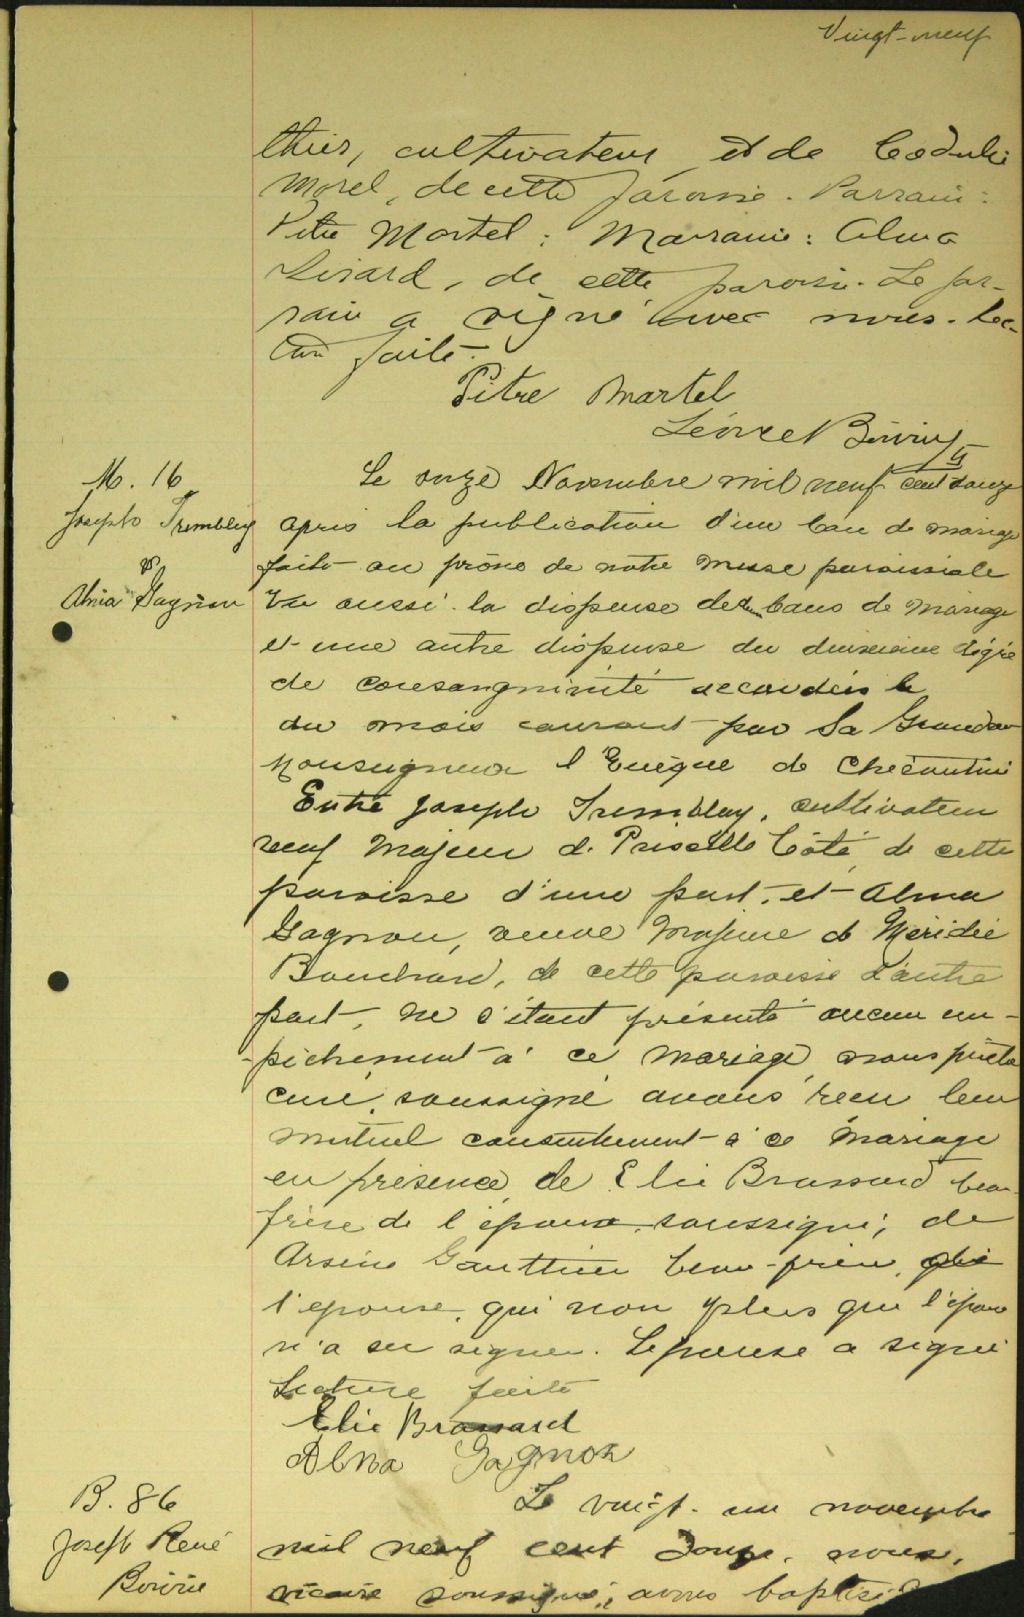 Vingt-neuf
thier, cultivateur et de
Morel, de cette paroisse. Parrain:
Pitre Martel; Marraine: Alma
Sivard, de cette paroisse. Le par-
rain a signé avec nous. Lec-
ture faite.
Pitre Martel
Léonce Boivin
M. 16
Joseph Tremblay
&
Alma Gagnon
Le onze Novembre mil neuf cent douze
après la publication d'un ban de mariage
faite au prône de notre messe paroissiale
Vu aussi la dispense de deux bans de mariage
et une autre dispense du deuxième degré
de consanguinité accordées le
du mois courant par Sa Grandeur
Monseigneur l'Evêque de Chicoutimi
Entre Joseph Tremblay, cultivateur
veuf majeur de Priscille Côté de cette
paroisse d'une part, et Alma
Gagnon, veuve majeure de Méridée
Bouchard, de cette paroisse d'autre
part, ne s'étant présenté aucun em-
-pêchement à ce mariage nous prêtre
curé, soussigné avons reçu leur
mutuel consentement à ce mariage
en présence de Elie Brassard beau-
frère de l'époux, soussigné, de
Arsène Gauthier beau-frère, de
l'épouse, qui non plus que l'époux
n'a su signer. L'épouse a signé
Lecture faite
Elie Brassard
Alma Gagnon
B. 86
Joseph René
Boivin
Le vingt-un novembre
mil neuf cent douze, nous,
vicaire soussigné, avons baptisé